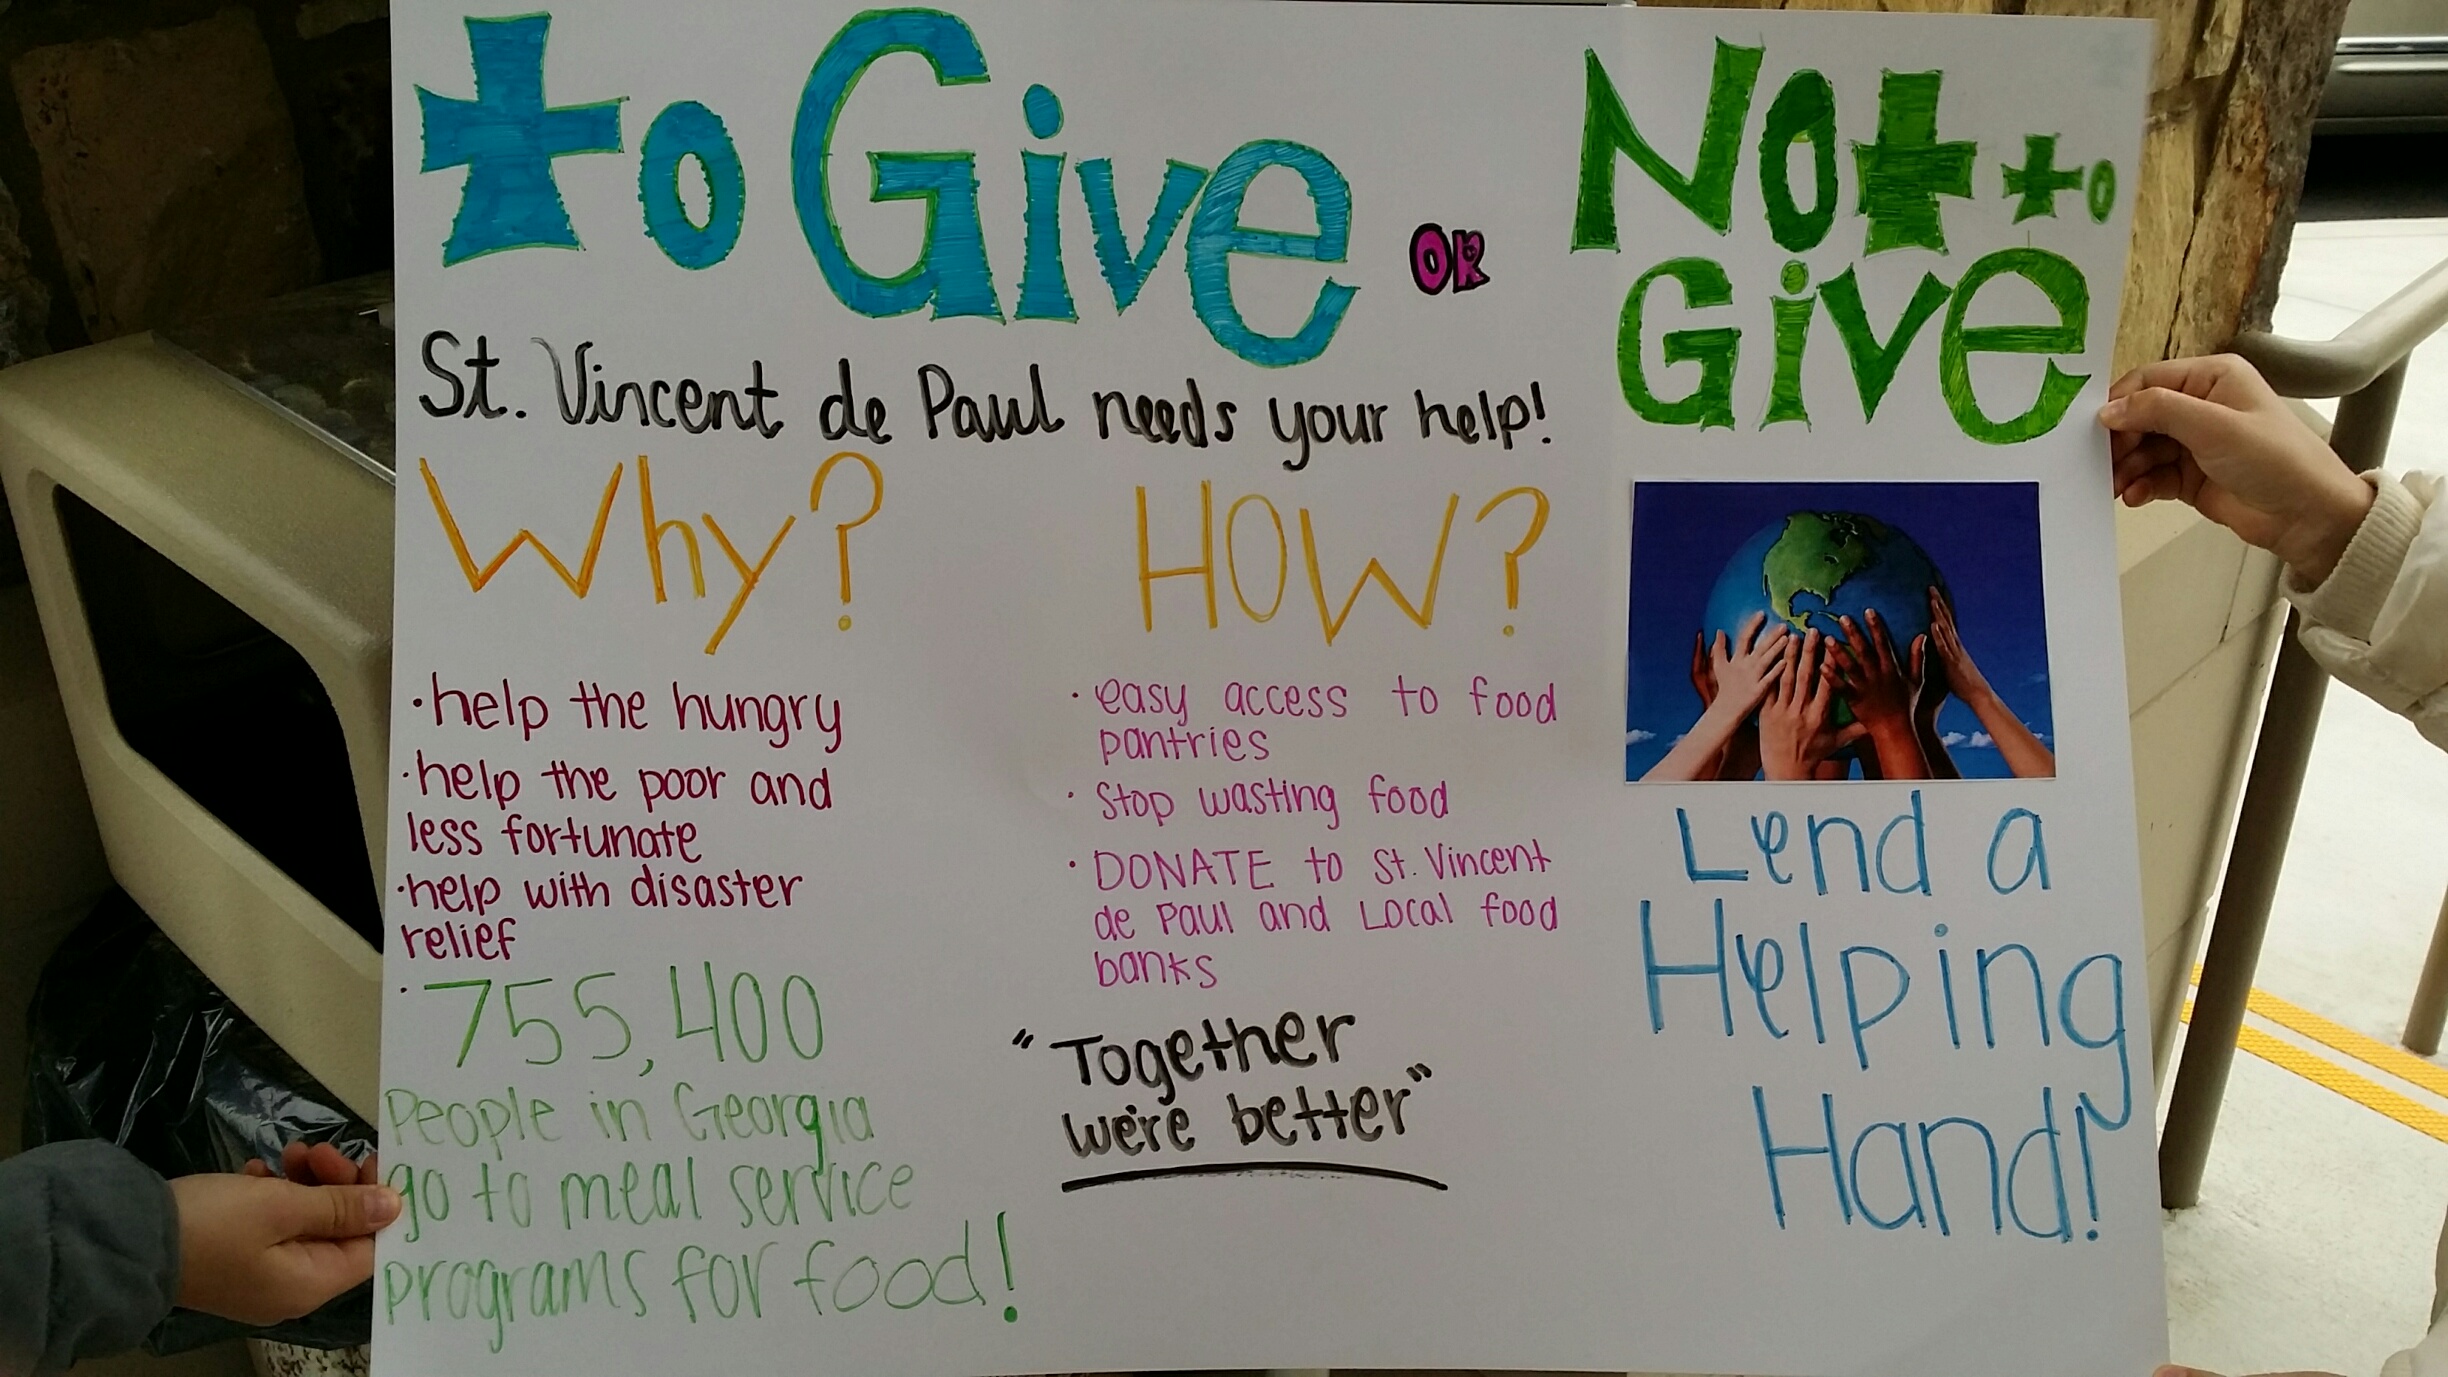 to Give OR Not to
Give
St. Vincent de Paul needs your help!
Why?
• help the hungry
• help the poor and
less fortunate
• help with disaster
relief
• 755,400
People in Georgia
go to meal service
programs for food!
HOW?
• easy access to food
pantries
• Stop wasting food
• DONATE to St. Vincent
de Paul and Local food
banks
"Together
we're better"
Lend a
Helping
Hand!